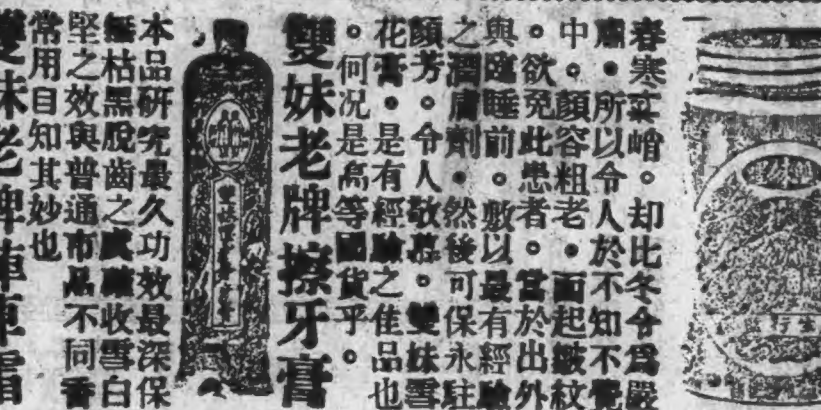 春寒峭。却比冬令為嚴
。所以令人於不知不覺
中。顏容粗老。面起皺紋
。欲免此患者。當於出外
與臨睡前。敷以最有經驗
之潤膚劑。然後可保永駐
顏芳。令人敬慕。雙妹雪
花膏。是有經驗之佳品也
。何况是高等國貨乎。
雙妹老牌擦牙膏
本品研究最久功效最深保
無枯黑脫齒之收雪白
堅之效與普通市品不同香
常用自知其妙也
雙妹老牌霜